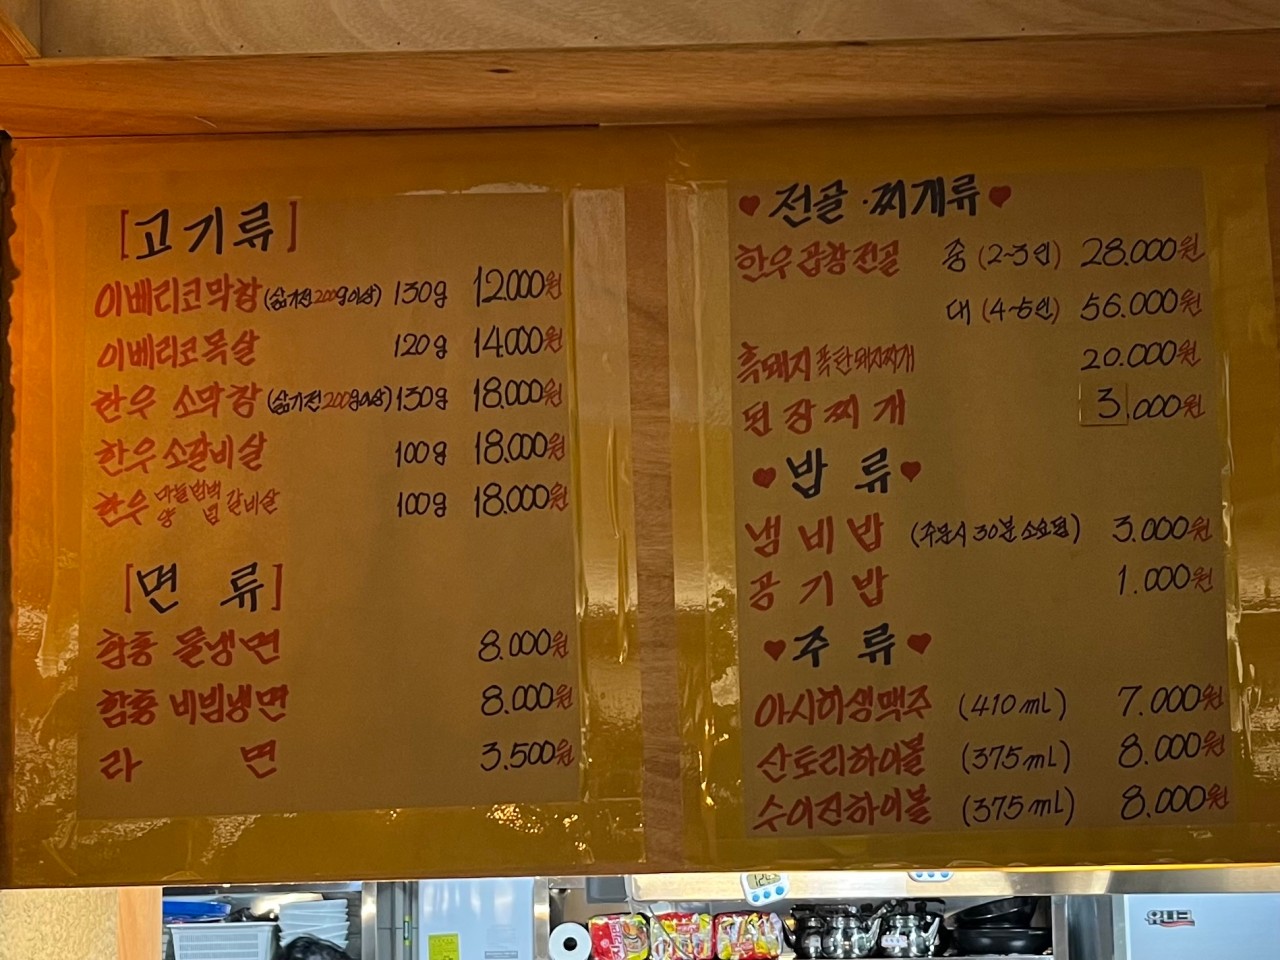 [고기류]
이베리코막창(삶기전200g이상) 130g 12.000원
이베리코목살 120g 14.000원
한우 소막창(삶기전200g이상) 130g 18.000원
한우 소갈비살 100g 18.000원
한우 마늘범벅 양념 갈비살 100g 18.000원
[면 류]
함흥 물냉면 8.000원
함흥 비빔냉면 8.000원
라 면 3.500원
♥전골·찌개류♥
한우곱창전골 중 (2~3인) 28.000원
대 (4~5인) 56.000원
흑돼지폭탄돼지찌개 20.000원
된장찌개 3.000원
♥밥 류♥
냄비밥 (주문시 30분 소요됨) 3.000원
공기밥 1.000원
♥주 류♥
아사히생맥주 (410ml) 7.000원
산토리하이볼 (375ml) 8.000원
수이진하이볼 (375ml) 8.000원
유니크